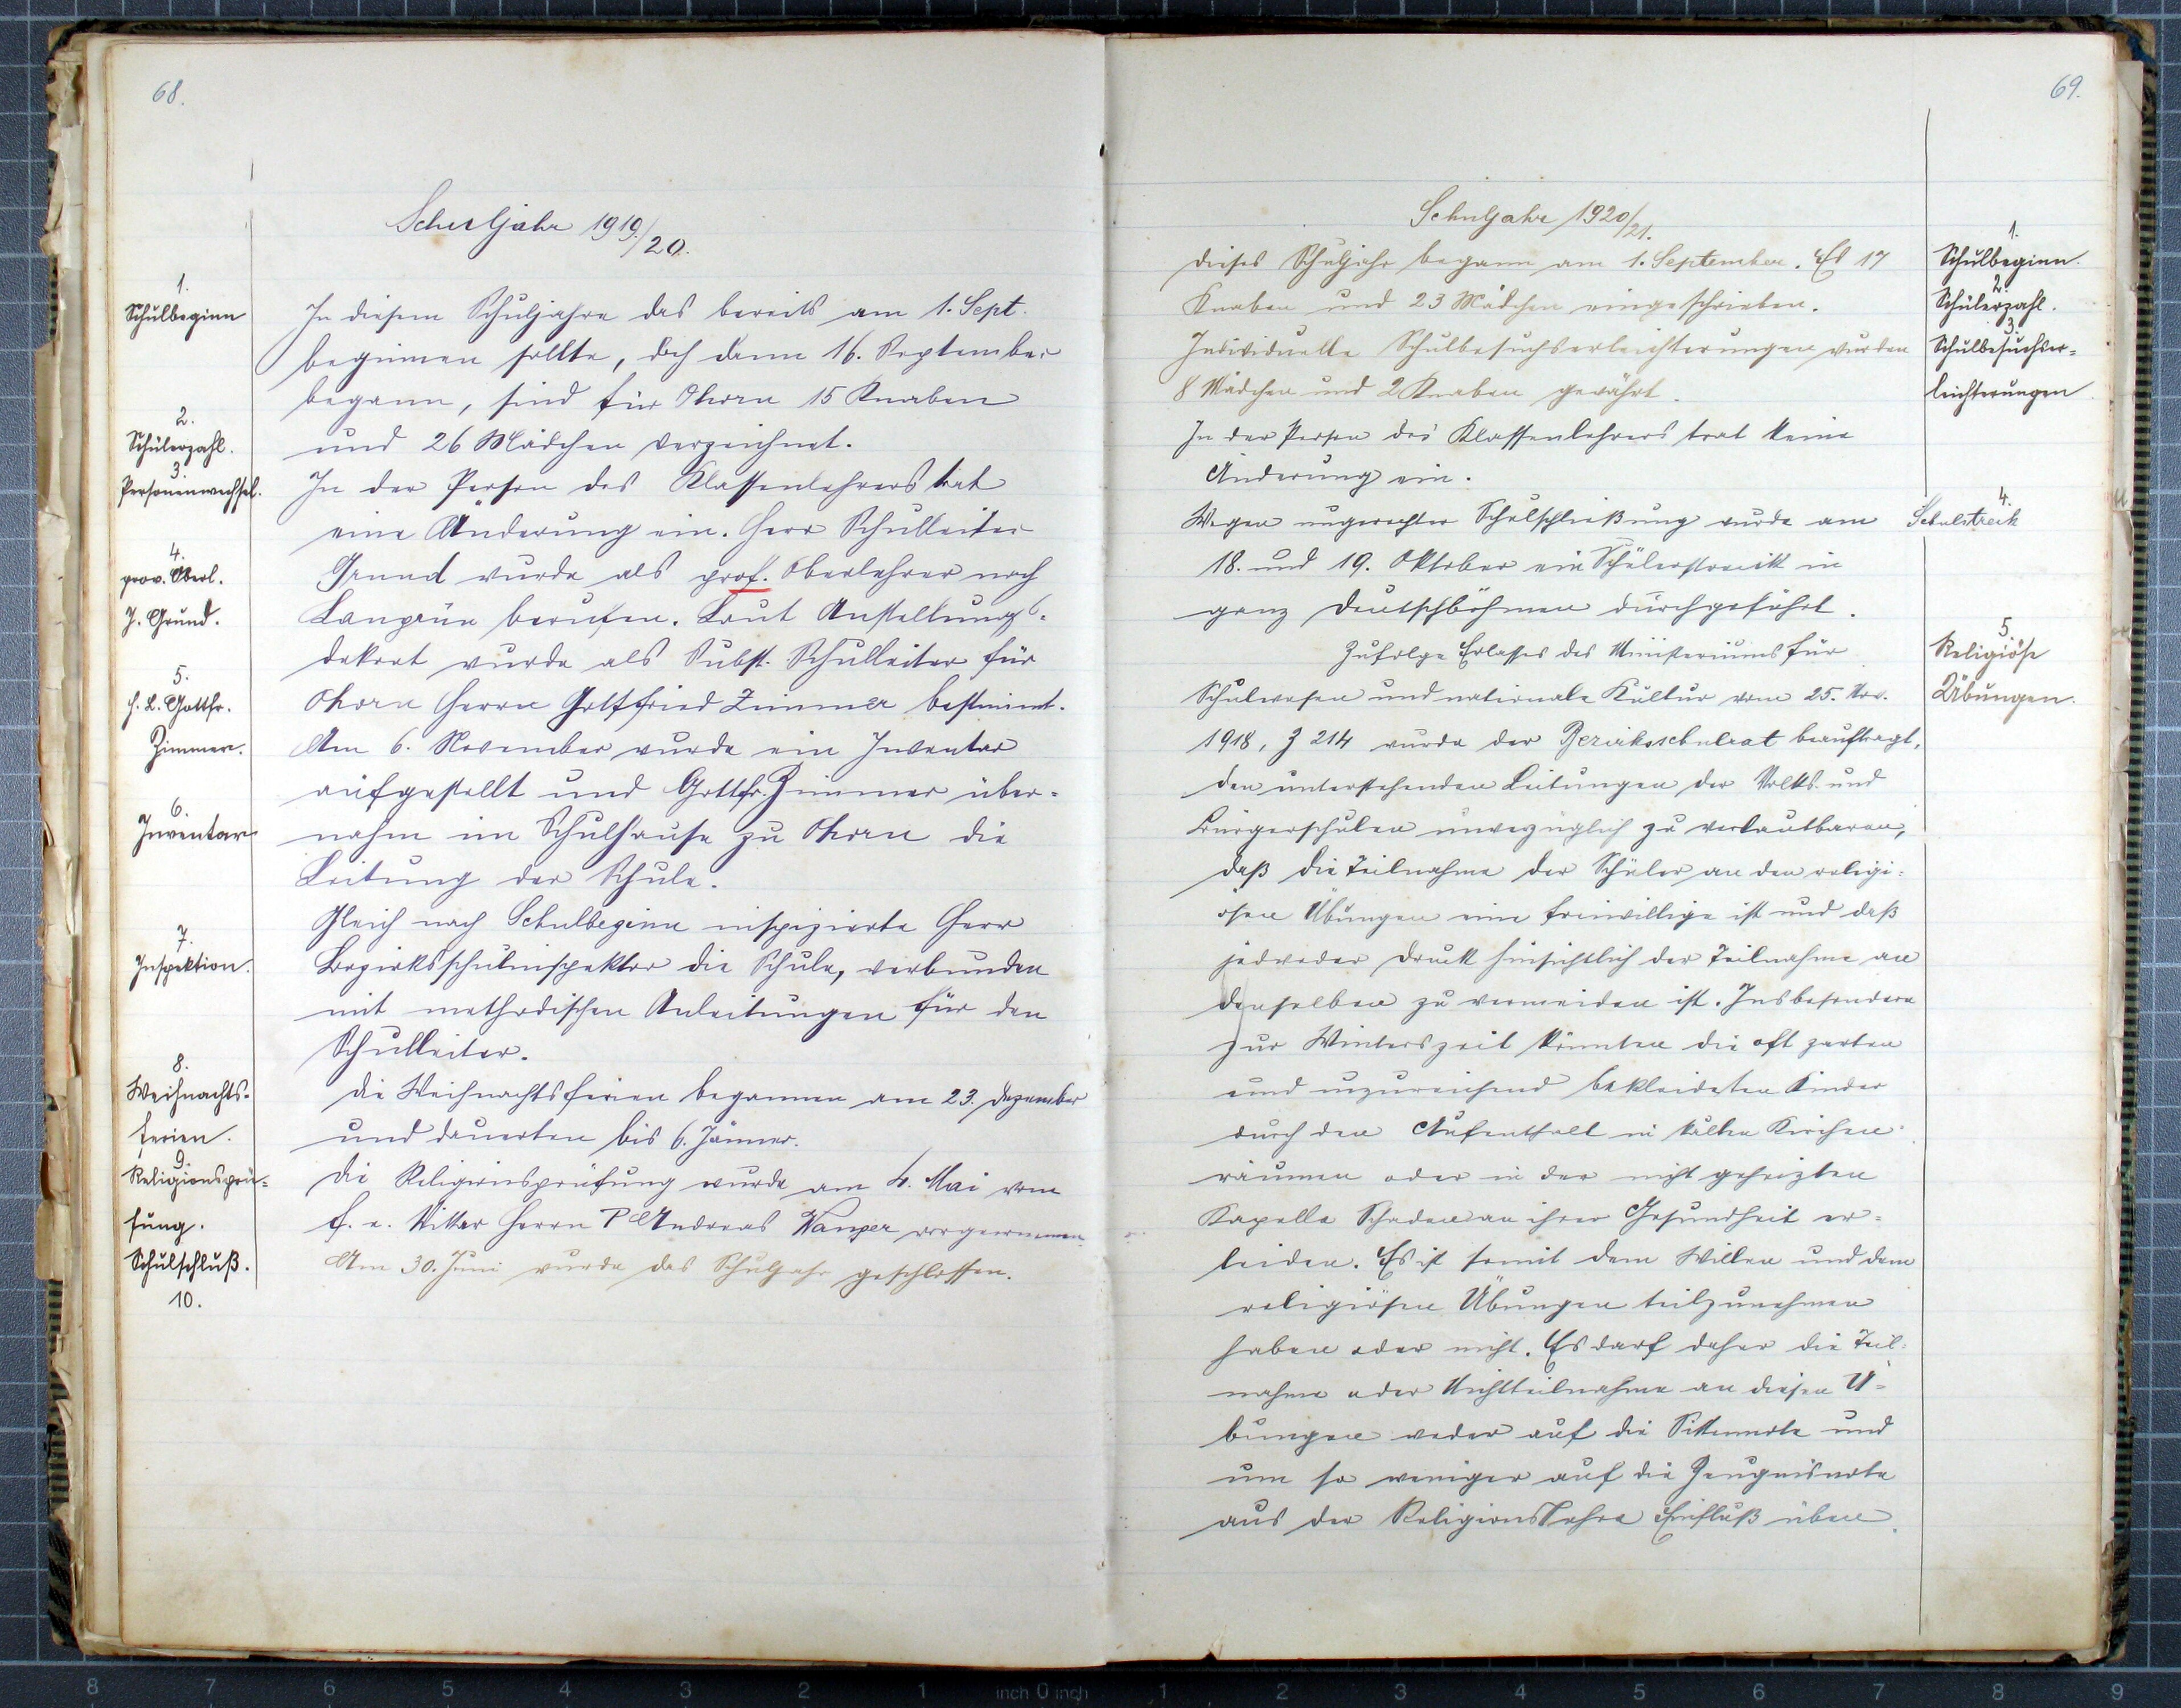 68.
Schuljahr 1919./20.
1.
Schulbeginn
In diesem Schuljahre das bereits am 1. Sept.
beginnen sollte, doch denn 16. September
begann, sind für Ohorn 15 Knaben
2.
Schülerzahl.
und 26 Mädchen verzeichnet.
3.
Personenwechsel.
In der Person des Klassenlehrers trat
eine Änderung ein. Herr Schulleiter
4.
prov. Oberl.
J. Grund.
Grund wurde als prof. Oberlehrer nach
berufen. Laut Anstellungs-
dekret wurde als Subst. Schulleiter für
5.
H. L. Gottfr.
Zimmer.
Ohorn Herrn Gottfried Zimmer bestimmt.
Am 6. November wurde ein Inventar
aufgestellt und Gottfr. Zimmer über-
6.
Inventar
nahm im Schulhause zu Ohorn die
Leitung der Schule.
Gleich nach Schulbeginn inspizierte Herr
7.
Inspektion.
Bezirksschulinspektor die Schule, verbunden
mit methodischen Anleitungen für den
Schulleiter.
8.
Weihnachts-
ferien.
Die Weihnachtsferien begannen am 23. Dezember
und dauerten bis 6. Jänner.
9.
Religionsprü-
fung.
Die Religionsprüfung wurde am 4. Mai vom
f. e. Herrn P Andreas Wanzer vorgenommen.
Schulschluß.
10.
Am 30. Juni wurde das Schuljahr geschlossen.
69.
Schuljahr 1920/21.
1.
Schulbeginn.
Dieses Schuljahr begann am 1. September. Es 17
2.
Schülerzahl.
Knaben und 23 Mädchen eingeschrieben.
3
Schulbesuchser-
leichterungen
Individuelle Schulbesuchserleichterungen wurden
8 Mädchen und 2 Knaben gewährt.
In der Person des Klassenlehrers trat keine
Änderung ein.
4.
Schulstreik
Wegen ungerechter Schulschließung wurde am
18. und 19. Oktober ein Schülerstreikt in
ganz Deutschböhmen durchgeführt.
5
Religiöse
Übungen.
Zufolge Erlasses des Ministeriums für
Schulwesen und nationale Kultur vom 25. Nov.
1918, Z 214 wurde der Bezirksschulrat beauftragt,
den unterstehenden Leitungen der Volks- und
Bürgerschulen unverzüglich zu verlautbaren,
daß die Teilnahme der Schüler an den religi-
ösen Übungen eine freiwillige ist und daß
jedweder Druck hinsichtlich der Teilnahme an
denselben zu vermeiden ist. Insbesondere
zur Winterszeit könnten die oft zarten
und unzureichend bekleideten Kinder
durch den Aufenthalt in kalten Kirchen-
räumen oder in der nicht geheizten
Kapelle Schaden an ihrer Gesundheit er-
leiden. Es ist somit dem Willen und dem
religiösen Übungen teilzunehmen
haben oder nicht. Es darf daher die Teil-
nahme oder Nichtteilnahme an diesen Ü-
bungen weder auf die Sittennote und
um so weniger auf die Zeugnisnote
aus der Religionslehre Einfluß üben.
8 7 6 5 4 3 2 1 inch 0 inch 1 2 3 4 5 6 7 8 9